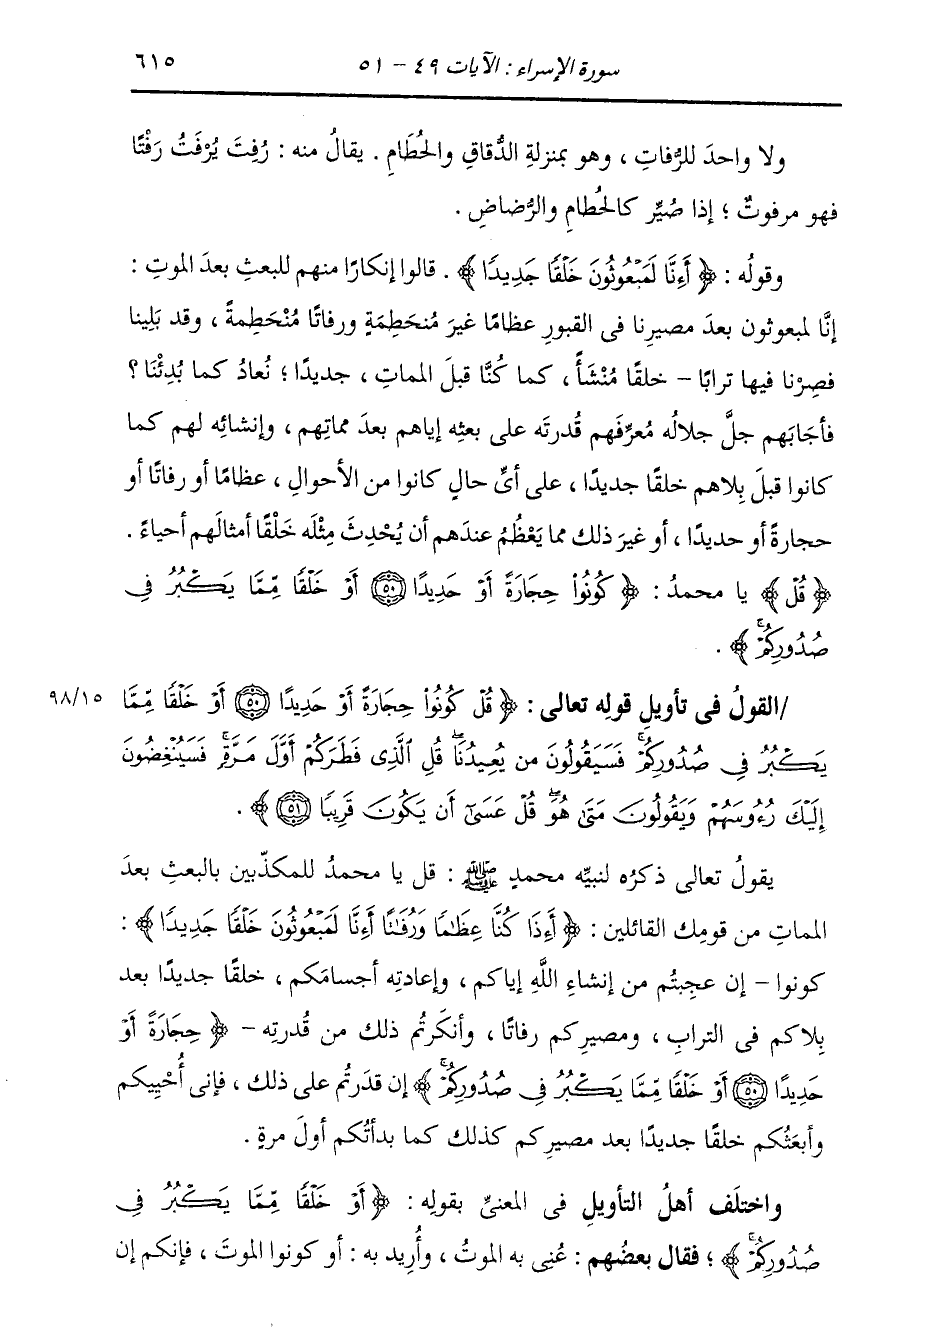 سورة الإسراء : الآيات ٤٩ - ٥١ ٦١٥
ولا واحدَ للرُّفاتِ ، وهو بمنزلةِ الدُّقاقِ والحُطَامِ . يقالُ منه : رُفِتَ يُرْفَتُ رَفْتًا
فهو مرفوتٌ ؛ إذا صُيِّر كالحُطامِ والرُّضاضِ .
وقولُه : ﴿ أَءِنَّا لَمَبْعُوثُونَ خَلْقًا جَدِيدًا ﴾ . قالوا إنكارًا منهم للبعثِ بعدَ الموتِ :
إنَّا لمبعوثون بعدَ مصيرِنا فى القبورِ عظامًا غيرَ مُنحَطِمَةٍ ورفاتًا مُنْحَطِمةً ، وقد بَلِينا
فصِرْنا فيها ترابًا - خلقًا مُنْشَأً ، كما كُنَّا قبلَ المماتِ ، جديدًا ؛ نُعادُ كما بُدِئْنَا ؟
فأجابَهم جلَّ جلالُه مُعرِّفَهم قُدرتَه على بعثِه إياهم بعدَ مماتِهم ، وإنشائِه لهم كما
كانوا قبلَ بِلاهم خلقًا جديدًا ، على أىِّ حالٍ كانوا من الأحوالِ ، عظامًا أو رفاتًا أو
حجارةً أو حديدًا ، أو غيرَ ذلك مما يَعْظُمُ عندَهم أن يُحْدِثَ مِثْلَه خَلْقًا أمثالَهم أحياءً .
﴿ قُلْ ﴾ يا محمدُ : ﴿ كُونُوا۟ حِجَارَةً أَوْ حَدِيدًا ۝٥٠ أَوْ خَلْقًا مِّمَّا يَكْبُرُ فِى
صُدُورِكُمْ ﴾ .
/القولُ فى تأويلِ قولِه تعالى : ﴿ قُلْ كُونُوا۟ حِجَارَةً أَوْ حَدِيدًا ۝٥٠ أَوْ خَلْقًا مِّمَّا ٩٨/١٥
يَكْبُرُ فِى صُدُورِكُمْ فَسَيَقُولُونَ مَن يُعِيدُنَا قُلِ ٱلَّذِى فَطَرَكُمْ أَوَّلَ مَرَّةٍ فَسَيُنْغِضُونَ
إِلَيْكَ رُءُوسَهُمْ وَيَقُولُونَ مَتَىٰ هُوَ قُلْ عَسَىٰٓ أَن يَكُونَ قَرِيبًا ۝٥١ ﴾ .
يقولُ تعالى ذكرُه لنبيِّه محمدٍ ﷺ : قل يا محمدُ للمكذِّبين بالبعثِ بعدَ
المماتِ من قومِك القائلين : ﴿ أَءِذَا كُنَّا عِظَٰمًا وَرُفَٰتًا أَءِنَّا لَمَبْعُوثُونَ خَلْقًا جَدِيدًا ﴾ :
كونوا - إن عجِبتُم من إنشاءِ اللَّهِ إياكم ، وإعادتِه أجسامَكم ، خلقًا جديدًا بعد
بِلاكم فى الترابِ ، ومصيرِكم رفاتًا ، وأنكَرتُم ذلك من قُدرتِه - ﴿ حِجَارَةً أَوْ
حَدِيدًا ۝٥٠ أَوْ خَلْقًا مِّمَّا يَكْبُرُ فِى صُدُورِكُمْ ﴾ إن قدَرتُم على ذلك ، فإنى أُحْيِيكم
وأبعَثُكم خلقًا جديدًا بعد مصيرِكم كذلك كما بدأتُكم أولَ مرةٍ .
واختلَف أهلُ التأويلِ فى المعنىِّ بقولِه : ﴿ أَوْ خَلْقًا مِّمَّا يَكْبُرُ فِى
صُدُورِكُمْ ﴾ ؛ فقال بعضُهم : عُنِى به الموتُ ، وأُرِيد به : أو كونوا الموتَ ، فإنكم إن